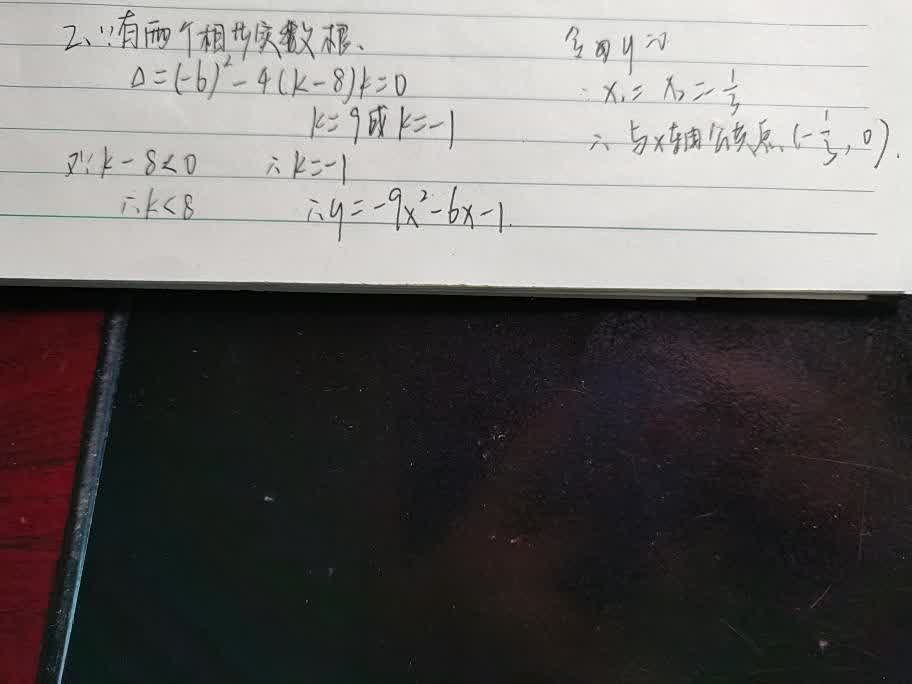 2、∵有两个相等实数根、
Δ=(-6)²-4(k-8)k=0
k=9或k=-1
又∵k-8<0 ∴k=-1
∴k<8 ∴y=-9x²-6x-1.
令y=0
∴x₁=x₂=-1/3
∴与x轴公共点(-1/3,0).